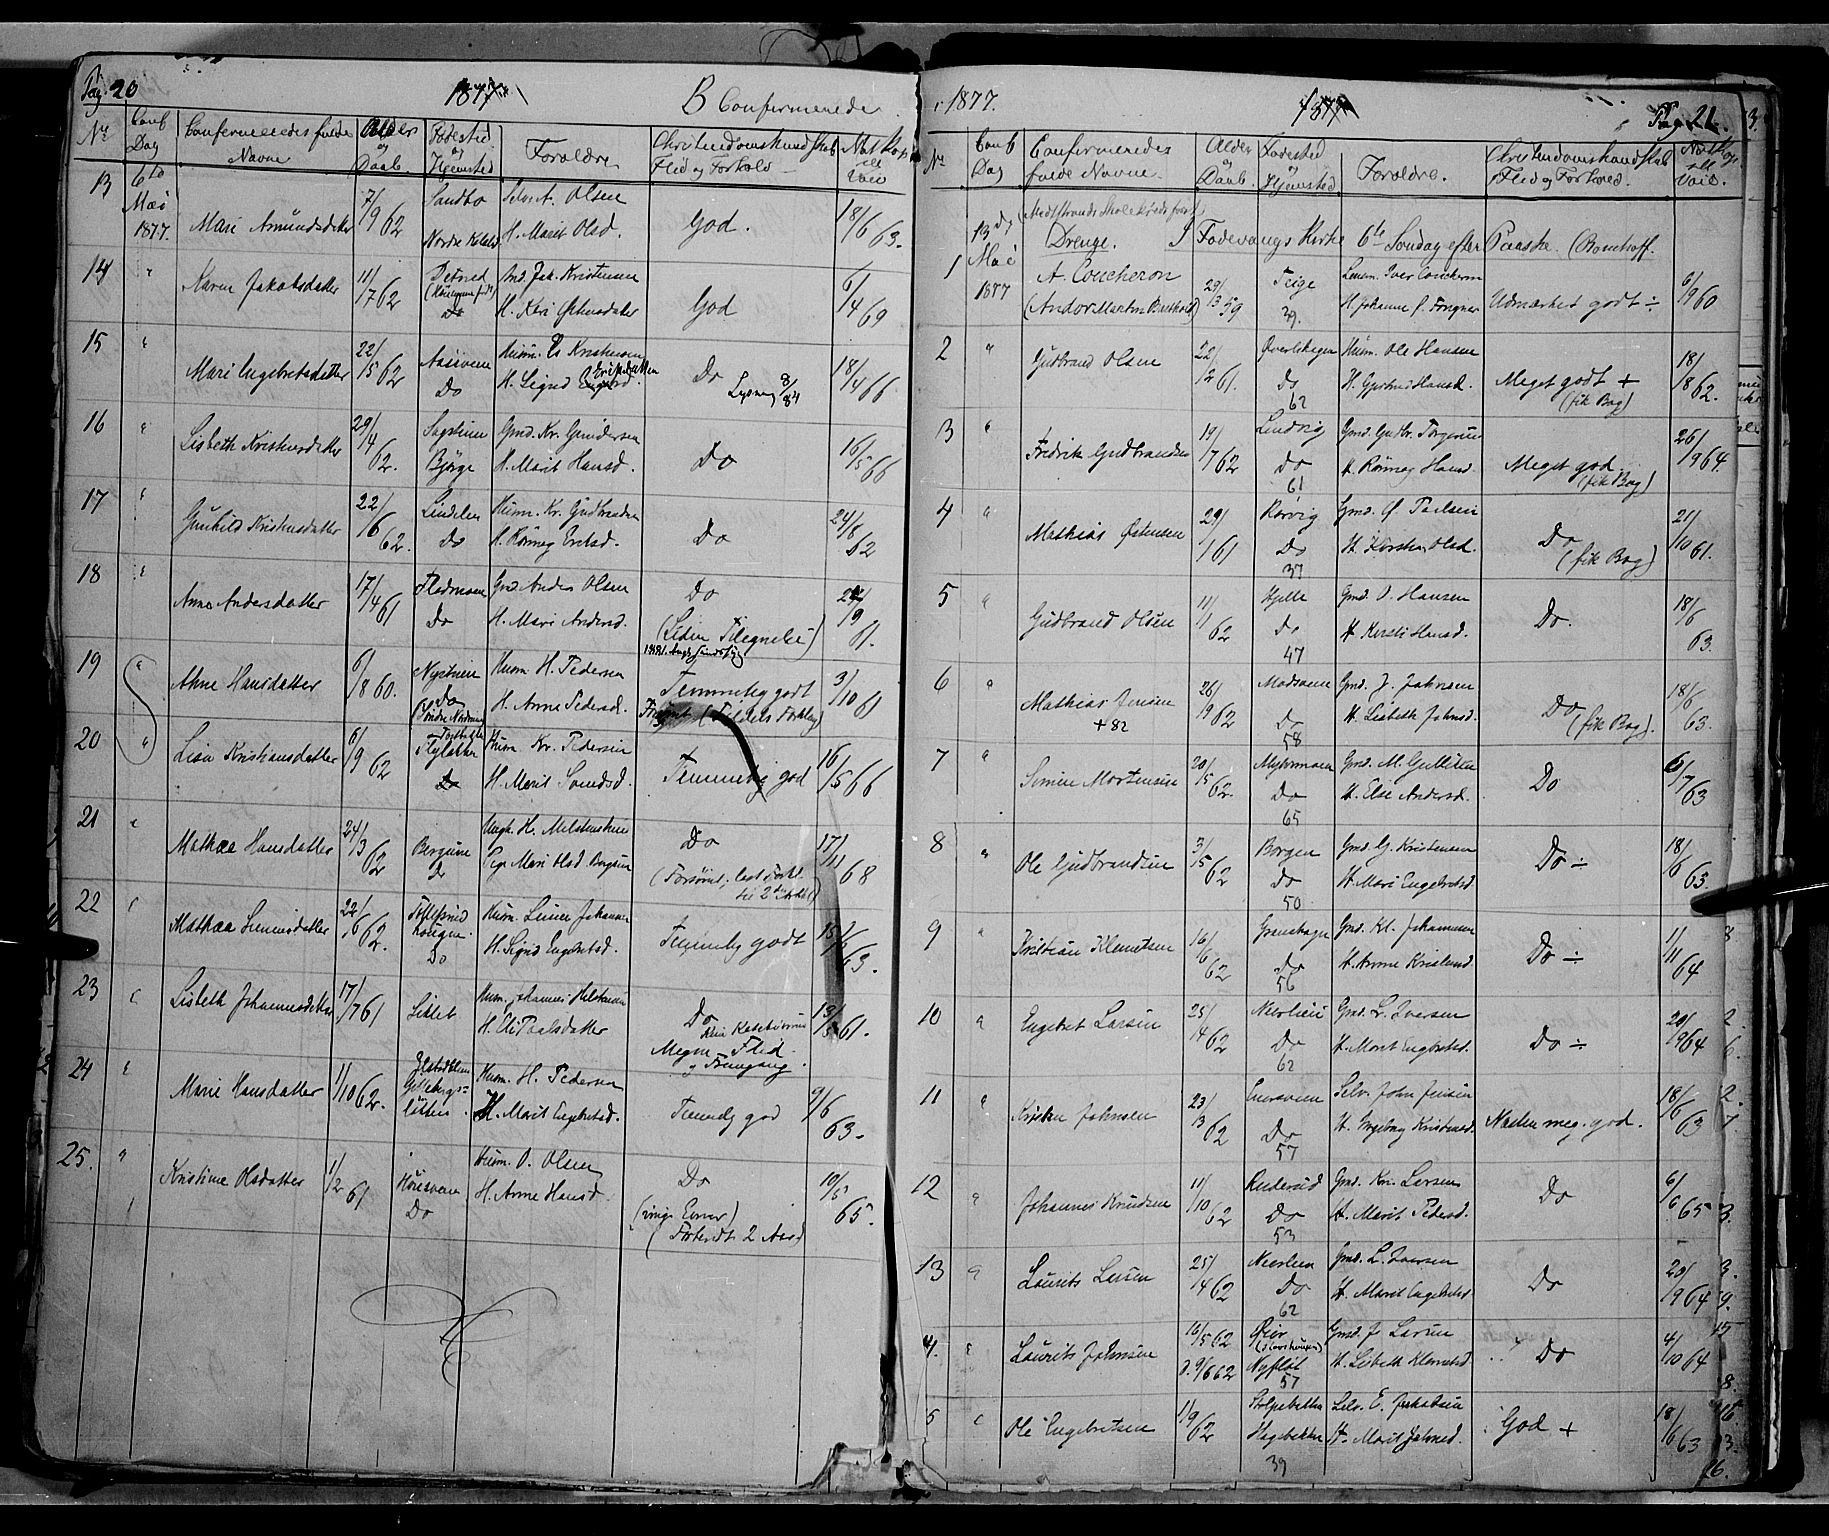 Pag. 20
1877
B Confermerede
Nr
Conf Dag
Confermeredes fulde Navne
Alder og Daab.
Fødested og Hjemsted
Forældre
Christendomskundskab Flid og Forhold
Nat. Kop. all Vaccine
13
6te Mai 1877.
Mari Amundsdatter
7/9 62
Sandbo
Selv. A. Olsen
H. Marit Olsd.
God.
18/6 63.
14
"
Karen Jakobsdatter
11/7 62
Do
Ind. Jak. Kristensen
H. Kari Østensdatter
God
6/4 69
15
"
Mari Engebretsdatter
22/5 62
Do
H. Sigrid Eriksdatter
Do
8/84
18/4 66
16
"
Lisbeth Kristensdatter
29/4 62.
Bjørge
Gmd. Kr. Gundersen
H. Marit Hansd.
Do
16/5 66
17
"
Gunhild Kristensdatter
22/6 62.
Lindelien
Do
Husm. Kr. Gudbrandsen
H. Rønnog Eriksd.
Do
24/8 62
18
"
Anne Andersdatter
17/4 61
Fladmoen
Do
Gmd. Anders Olsen
H. Mari Andersd.
Do
/9 61.
19
"
Ahne Hansdatter
6/8 60.
Nystuen
Do
Husm H. Pedersen
H. Anne Pedersd.
Temmelig godt
3/10 61
20
"
Lisa Kristiansdatter
6/9 62
Do
Husm. Kr. Pedersen
H. Marit
Temmelig god
16/5 66
21
"
Mathea Hansdatter
24/3 62
Bergum
Do
Ungk. H. Melstenshuen
Pige Mari Olsd Bergum
Do
(Forsømt; læst Forkl. til 2den Artikkel)
17/11 68
22
"
Mathea Simensdatter
22/6 62.
Do
Husm. Simen Johannesen
H. Sigrid Engebretsd.
Temmelig godt
/6 63.
23
"
Lisbeth Johannesdatter
17/7 61
Sletet
Husm. Johannes
H. Eli Paalsdatter
Do
Megen Flid og Fremgang.
13/ 61.
24
"
Marie Hansdatter
1/10 62.
Husm. H. Pedersen
H. Marit Engebretsd.
Temmelig god
9/6 63.
25.
"
Kristine Olsdatter
1/2 61
Do
Husm. O. Olsen
H. Anne Hansd.
Do
(ringe Evner)
(Forberedt 2 Aar)
10/5 65.
1877.
1877
Pag. 21.
Nr
Conf Dag
Confermeredes fulde Navne.
Alder og Daab.
Fødested og Hjemsted
Forældre.
Christendomskundskab Flid og Forhold.
Nat. Kop. all Vaccine.
13de Mai 1877
Drenge. I Fodevangs Kirke 6te Søndag efter Paaske. (Bomhoff.
1
A. Coucheron
(Andor Martin Barthold)
29/3 59
Teige
39.
Lensm. Iver Coucheron
H. Johanne C. Frogner
Udmærket godt ÷
6/9 60
2
"
Gudbrand Olsen
22/12 61.
Do
62
Husm. Ole Hansen
H. Hansd.
Meget godt +
(fik Bog)
18/8 62.
3
"
Fredrik Gudbrandsen
19/7 62
Lindvig
Do
61
Gmd. Gudbr. Torgersen
H. Rønnog Hansd
Meget god
(fik Bog)
26/9 64.
4
"
Mathias Østensen
29/1 61
Rørvig
Do
37
Gmd. Ø. Paulsen
H. Kirsten Olsd.
Do
(fik Bog)
21/10 61.
5
"
Gudbrand Olsen
11/1 62
Hjelle
Do
47
Gmd. O. Hansen
H. Kersti Hansd.
Do.
18/6 63.
6
"
Mathias Jensen
+ 82
26/9 62
Madsveen
Do
58
Gmd. J. Johnsen
H. Lisbeth Johnsd.
Do
(fik Bog).
18/6 63.
7
"
Simen Mortensen
20/5 62.
Myhrmoen
Do
65
Gmd. M. Gulliksen
H. Else Andersd.
Do
6/7 63
8
"
Ole Gudbrandsen
3/5 62
Borgen
Do
50
Gmd. G. Kristensen
H. Mari Engebretsd.
Do ÷
18/6 63.
9
"
Kristian Klemetsen
16/6 62
Granshagen
Do
56
Gmd. Kl. Johannesen
H. Anne Kristensd.
Do ÷
1/11 64
10
"
Engebret Larsen
25/4 62
Neerlien
Do
62
Gmd. L. Iversen
H. Marit Engebretsd.
Do ÷
20/9 64
11
"
Kristen Johnsen
23/3 62
Do
57
Selv. John Jensen
H. Ingeborg Kristensd.
Næsten meg. god.
18/6 63
12
"
Johannes Knudsen
11/10 62
Ruderud
Do
53
Gmd. Kn. Larsen
H. Marit Pedersd.
Do
6/6 65
13
"
Laurits Larsen
25/4 62
Neerlien
Do
62
Gmd. L. Iversen
H. Marit Engebretsd.
Do
20/9 64
4.
"
Laurits Johnsen
16/5 62
d. 9/6 62
Øier
Nyfløt
57
Gmd. J. Larsen
H. Lisbeth Klemetsd.
Do
4/10 64
5
"
Ole Engebretsen
1/9 62
Stolpebakken
Hagebakken
39
Selv. E. Jakobsen
H. Marit Johnsd.
God +
18/6 63